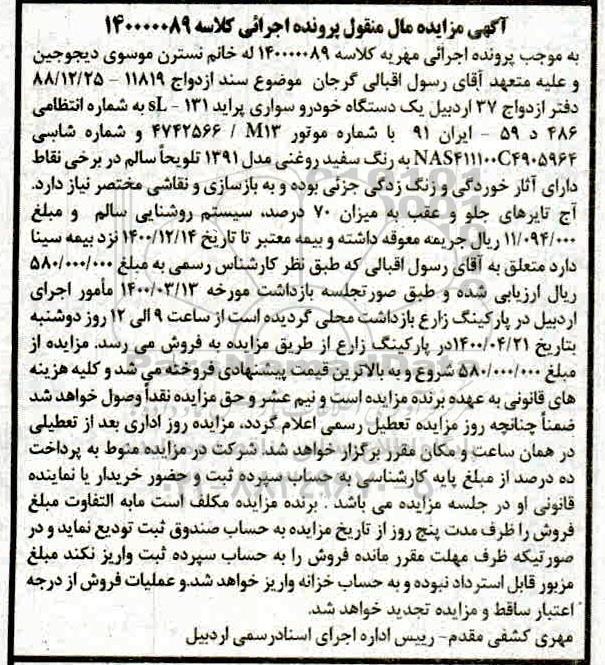 آگهی مزایده مال منقول پرونده اجرائی کلاسه ۱۴۰۰۰۰۰۸۹
به موجب پرونده اجرائی مهریه کلاسه ۱۴۰۰۰۰۰۸۹ له خانم نسترن موسوی دیجوجین
و علیه متعهد آقای رسول اقبالی گرجان موضوع سند ازدواج ۱۱۸۱۹ - ۸۸/۱۲/۲۵
دفتر ازدواج ۳۷ اردبیل یک دستگاه خودرو سواری پراید ۱۳۱ - sL به شماره انتظامی
۴۸۶ د ۵۹ - ایران ۹۱ با شماره موتور M۱۳ / ۴۷۴۲۵۶۶ و شماره شاسی
NAS۴۱۱۱۰۰C۴۹۰۵۹۶۴ به رنگ سفید روغنی مدل ۱۳۹۱ تلویحاً سالم در برخی نقاط
دارای آثار خوردگی و زنگ زدگی جزئی بوده و به بازسازی و نقاشی مختصر نیاز دارد.
آج تایرهای جلو و عقب به میزان ۷۰ درصد، سیستم روشنایی سالم و مبلغ
۱۱/۰۹۴/۰۰۰ ریال جریمه معوقه داشته و بیمه معتبر تا تاریخ ۱۴۰۰/۱۲/۱۴ نزد بیمه سینا
دارد متعلق به آقای رسول اقبالی که طبق نظر کارشناس رسمی به مبلغ ۵۸۰/۰۰۰/۰۰۰
ریال ارزیابی شده و طبق صورتجلسه بازداشت مورخه ۱۴۰۰/۰۳/۱۳ مأمور اجرای
اردبیل در پارکینگ زارع بازداشت محلی گردیده است از ساعت ۹ الی ۱۲ روز دوشنبه
بتاریخ ۱۴۰۰/۰۴/۲۱در پارکینگ زارع از طریق مزایده به فروش می رسد. مزایده از
مبلغ ۵۸۰/۰۰۰/۰۰۰ شروع و به بالاترین قیمت پیشنهادی فروخته می شد و کلیه هزینه
های قانونی به عهده برنده مزایده است و نیم عشر و حق مزایده نقداً وصول خواهد شد
ضمناً چنانچه روز مزایده تعطیل رسمی اعلام گردد، مزایده روز اداری بعد از تعطیلی
در همان ساعت و مکان مقرر برگزار خواهد شد. شرکت در مزایده منوط به پرداخت
ده درصد از مبلغ پایه کارشناسی به حساب سپرده ثبت و حضور خریدار یا نماینده
قانونی او در جلسه مزایده می باشد . برنده مزایده مکلف است مابه التفاوت مبلغ
فروش را ظرف مدت پنج روز از تاریخ مزایده به حساب صندوق ثبت تودیع نماید و در
صورتیکه ظرف مهلت مقرر مانده فروش را به حساب سپرده ثبت واریز نکند مبلغ
مزبور قابل استرداد نبوده و به حساب خزانه واریز خواهد شد.و عملیات فروش از درجه
اعتبار ساقط و مزایده تجدید خواهد شد.
مهری کشفی مقدم- رییس اداره اجرای اسنادرسمی اردبیل